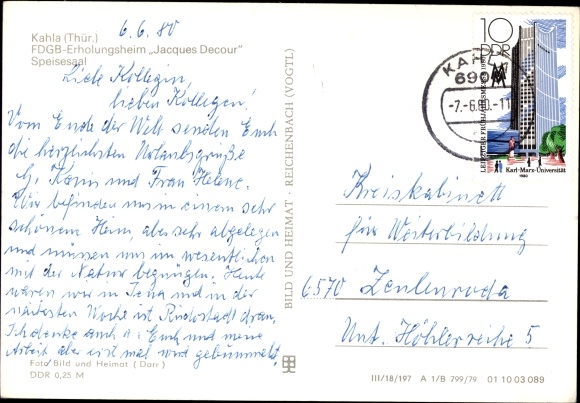 6.6.80
Kahla (Thür.)
FDGB-Erholungsheim „Jacques Decour"
Speisesaal
Liebe Kollegin,
lieben Kollegen!
Vom Ende der Welt senden Euch
die herzlichsten Urlaubsgrüße
G. Karin und Frau Helene.
Wir befinden uns in einem sehr
schönem Heim, aber sehr abgelegen
und müssen uns im wesentlichen
mit der Natur begnügen. Heute
waren wir in Jena und in der
nächsten Woche ist Rudolstadt dran.
Ich denke auch a. Euch und meine
Arbeit aber erst mal wird gebummelt.
Foto Bild und Heimat (Darr)
DDR 0,25 M
BILD UND HEIMAT · REICHENBACH (VOGTL)
10
DDR
LEIPZIGER FRÜHJAHRSMESSE 1980
Karl-Marx-Universität
1980
KAHLA
690
-7.-6.80.-11
Kreiskabinett
für Weiterbildung
6570 Zeulenroda
Unt. Höhlerreihe 5
III/18/197 A 1/B 799/79 01 10 03 089